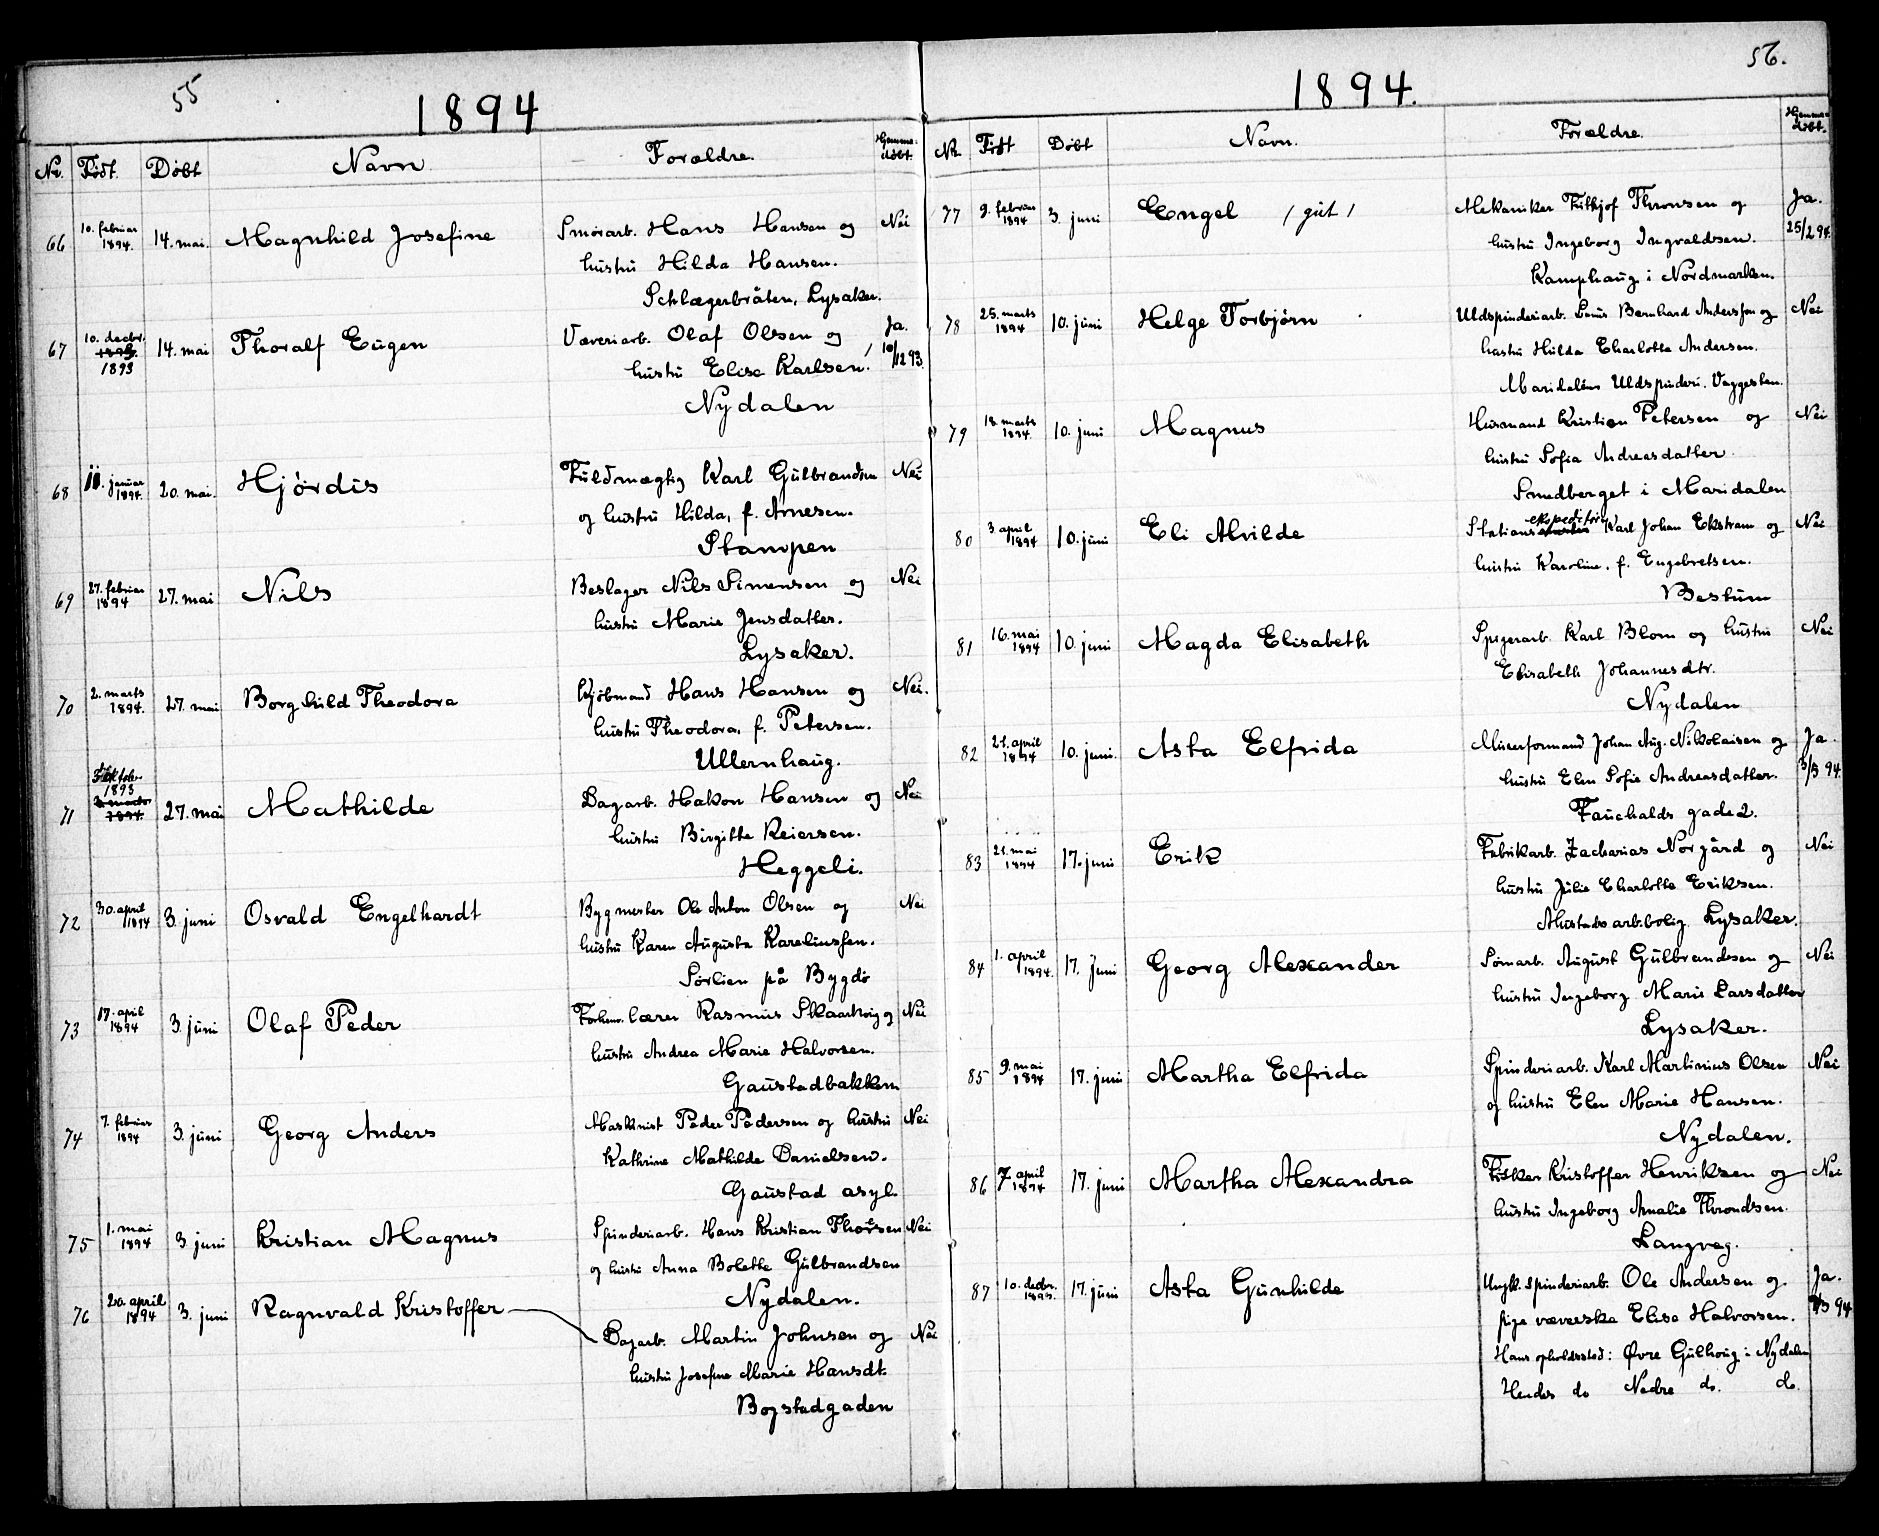 55
1894
Nr. Født. Døbt Navn Forældre. Hjemmedøbt.
66 10. februar 1894. 14. mai. Magnhild Josefine Smørarb. Hans Hansen og Nei
hustru Hilda Hansen.
Schlægerbråten, Lysaker.
67 10. decbr. 1893 14. mai Thoralf Eugen Væveriarb. Olaf Olsen og Ja.
hustru Elise Karlsen. 10/12 93.
Nydalen
68 11. januar 1894. 20. mai. Hjørdis Fuldmægtig Karl Gulbrandsen Nei
og hustru Hilda, f. Arnesen.
Stampen
69 27. februar 1894 27. mai Nils Beslager Nils Simensen og Nei
hustru Marie Jensdatter.
Lysaker.
70 2. marts 1894. 27. mai Borghild Theodora Kjøbmand Hans Hansen og Nei.
hustru Theodora, f. Petersen.
Ullernhaug.
71 oktober 1893 2. marts 1894. 27. mai Mathilde Dagarb. Hakon Hansen og Nei
hustru Birgitte Reiersen.
Heggeli.
72 30. april 1894 3. juni Osvald Engelhardt Bygmester Ole Anton Olsen og Nei
hustru Karen Augusta Kareliussen.
Sørlien på Bygdø
73 17. april 1894 3. juni Olaf Peder Forhenv. lærer Rasmus Skaarhoig og Nei
hustru Andrea Marie Halvorsen.
Gaustadbakken
74 7. februar 1894 3. juni Georg Anders Maskinist Peder Pedersen og hustru Nei
Kathrine Mathilde Danielsen.
Gaustad asyl.
75 1. mai 1894 3. juni Kristian Magnus Spinderiarb. Hans Kristian Thorsen Nei
og hustru Anna Bolette Gulbrandsen
Nydalen.
76 20. april 1894 3. juni Ragnvald Kristoffer Dagarb. Martin Johnsen og Nei
hustru Josefine Marie Hansdt.
Bogstadgaden
56.
1894.
Nr. Født Døbt Navn. Forældre. Hjemmedøbt.
77 9. februar 1894 3. juni Engel / gut / Mekaniker Fritjof Thronsen og Ja.
hustru Ingeborg Ingvaldsen. 25/2 94.
Kamphaug i Nordmarken.
78 25. marts 1894 10. juni Helge Torbjørn Uldspinderiarb. Louis Bernhard Andersson og Nei
hustru Hilda Charlotte Andersen.
Maridalens Uldspinderi. Vaggesten.
79 18. marts 1894. 10. juni Magnus Husmand Kristian Petersen og Nei
hustru Sofia Andreasdatter.
Smedberget i Maridalen
80 3. april 1894 10. juni Eli Alvilde Stationsekspeditør Karl Johan Ekstrøm og Nei
hustru Karoline, f. Engebretsen.
Bestum
81 16. mai 1894 10. juni Magda Elisabeth Spigerarb. Karl Blom og hustru Nei
Elisabeth Johannesdtr.
Nydalen
82 21. april 1894 10. juni. Asta Elfrida Murerformand Johan Aug. Nikolaisen og Ja.
hustru Elen Sofie Andreasdatter. 3/5 94.
Fauchalds gade 2.
83 21. mai 1894 17. juni Erik Fabrikarb. Zacharias Norgård og Nei
hustru Julie Charlotte Eriksen.
Mustads arb.bolig. Lysaker.
84 1. april 1894. 17. juni Georg Alexander Sømarb. August Gulbrandsen og Nei
hustru Ingeborg Marie Larsdatter
Lysaker.
85 9. mai 1894 17. juni Martha Elfrida Spinderiarb. Karl Martinius Olsen Nei
og hustru Elen Marie Hansen.
Nydalen.
86 7. april 1894 17. juni Martha Alexandra Fisker Kristoffer Henriksen og Nei
hustru Ingeborg Amalie Throndsen.
Langveg.
87 10. decbr. 1893. 17. juni Asta Gunhilde Ungk. spinderiarb. Ole Andersen og Ja.
pige væverske Elise Halvorsen. /3 94
Hans opholdssted: Øvre Gulhoug i Nydalen
Hendes do Nedre do. do.